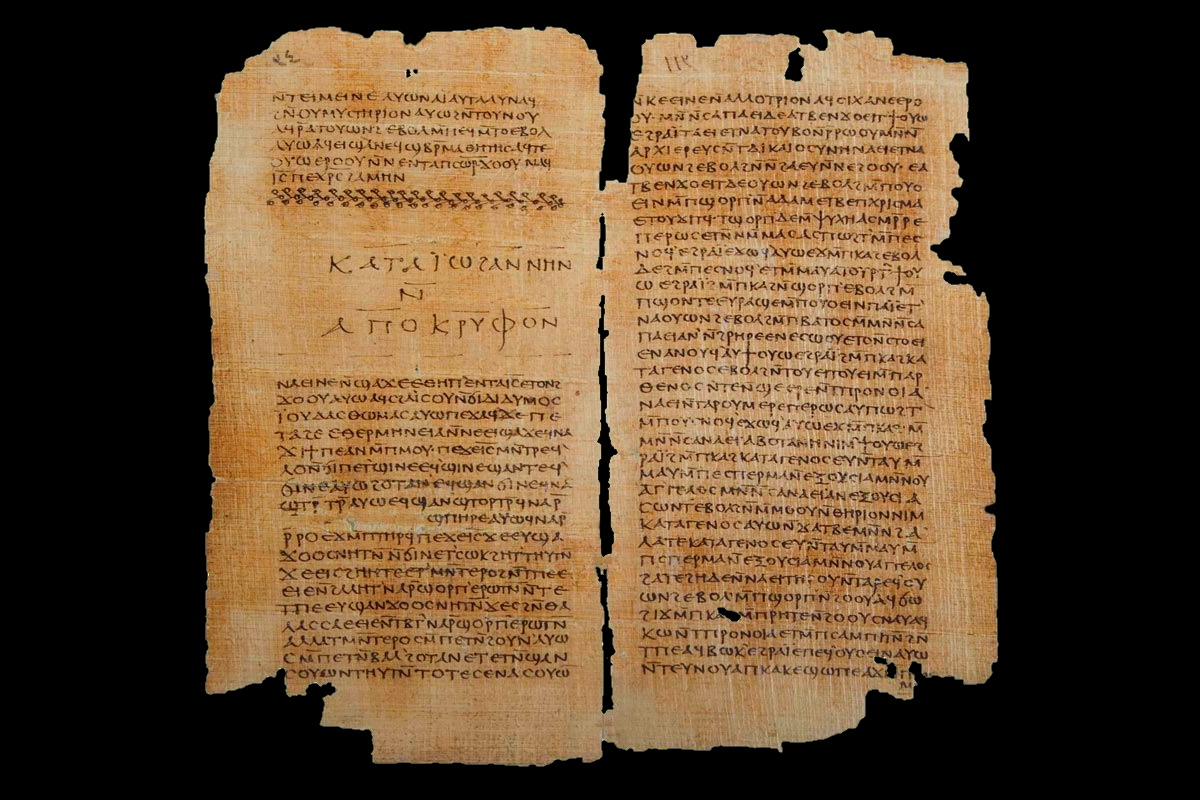 ⲛ̄ⲧⲉⲓⲙⲉⲓⲛⲉ ⲁⲩⲱ ⲛⲁⲓ̈ ⲁⲩⲧⲁⲁⲩ ⲛⲁϥ
ϩⲛ̄ ⲟⲩⲙⲩⲥⲧⲏⲣⲓⲟⲛ ⲁⲩⲱ ϩⲛ̄ ⲧⲟⲩⲛⲟⲩ
ⲁϥⲣ̄ⲁⲧⲟⲩⲱⲛϩ ⲉⲃⲟⲗ ⲙ̄ⲡⲉϥⲙ̄ⲧⲟ ⲉⲃⲟⲗ
ⲁⲩⲱ ⲁϥⲉⲓ ϣⲁ ⲛⲉϥϣⲃⲣⲙⲁⲑⲏⲧⲏⲥ ⲁϥⲧⲉ
ⲟⲩⲱ ⲉⲣⲟⲟⲩ ⲛ̄ⲛⲉⲛⲧⲁⲡⲥⲱ̅ⲣ̅ ϫⲟⲟⲩ ⲛⲁϥ
ⲓ̅ⲥ̅ ⲡⲉⲭ̅ⲣ̅ⲥ̅ ϩⲁⲙⲏⲛ
ⲕⲁⲧⲁ ⲓ̈ⲱϩⲁⲛⲛⲏⲛ
ⲛ̄
ⲁⲡⲟⲕⲣⲩⲫⲟⲛ
ⲛⲁⲉⲓ ⲛⲉ ⲛ̄ϣⲁϫⲉ ⲉⲑⲏⲡ ⲉⲛⲧⲁⲓ̅ⲥ̅ ⲉⲧⲟⲛϩ
ϫⲟⲟⲩ ⲁⲩⲱ ⲁϥⲥϩⲁⲓ̈ⲥⲟⲩ ⲛ̄ϭⲓ ⲇⲓⲇⲩⲙⲟⲥ
ⲓ̈ⲟⲩⲇⲁⲥ ⲑⲱⲙⲁⲥ ⲁⲩⲱ ⲡⲉϫⲁϥ ϫⲉ ⲡⲉ
ⲧⲁϩⲉ ⲉⲑⲉⲣⲙⲏⲛⲉⲓⲁ ⲛ̄ⲛⲉⲉⲓϣⲁϫⲉ ϥⲛⲁ
ϫⲓ ϯⲡⲉ ⲁⲛ ⲙ̄ⲡⲙⲟⲩ ⲡⲉϫⲉ ⲓ̅ⲥ̅ ⲙⲛ̄ⲧⲣⲉϥ
ⲗⲟ ⲛ̄ϭⲓ ⲡⲉⲧϣⲓⲛⲉ ⲉϥϣⲓⲛⲉ ϣⲁⲛⲧⲉϥ
ϭⲓⲛⲉ ⲁⲩⲱ ϩⲟⲧⲁⲛ ⲉϥϣⲁⲛϭⲓⲛⲉ ϥⲛⲁ
ϣⲧⲣ̄ⲧⲣ̄ ⲁⲩⲱ ⲉϥϣⲁⲛϣⲧⲟⲣⲧⲣ̄ ϥⲛⲁⲣ̄
ϣⲡⲏⲣⲉ ⲁⲩⲱ ϥⲛⲁⲣ̄
ⲣ̄ⲣⲟ ⲉϫⲙ̄ ⲡⲧⲏⲣϥ ⲡⲉϫⲉ ⲓ̅ⲥ̅ ϫⲉ ⲉⲩϣⲁ
ϫⲟⲟⲥ ⲛⲏⲧⲛ̄ ⲛ̄ϭⲓ ⲛⲉⲧⲥⲱⲕ ϩⲏⲧ ⲧⲏⲩⲧⲛ̄
ϫⲉ ⲉⲓⲥϩⲏⲏⲧⲉ ⲉⲧⲙⲛ̄ⲧⲉⲣⲟ ϩⲛ̄ ⲧⲡⲉ
ⲉⲓⲉ ⲛ̄ϩⲁⲗⲏⲧ ⲛⲁⲣ̄ϣⲟⲣⲡ ⲉⲣⲱⲧⲛ̄ ⲛ̄ⲧⲉ
ⲧⲡⲉ ⲉⲩϣⲁⲛϫⲟⲟⲥ ⲛⲏⲧⲛ̄ ϫⲉ ⲥϩⲛ̄ ⲑⲁ
ⲗⲁⲥⲥⲁ ⲉⲉⲓⲉ ⲛ̄ⲧⲃⲧ ⲛⲁⲣ̄ϣⲟⲣⲡ ⲉⲣⲱⲧⲛ̄
ⲁⲗⲗⲁ ⲧⲙⲛ̄ⲧⲉⲣⲟ ⲥⲙ̄ⲡⲉⲧⲛ̄ϩⲟⲩⲛ ⲁⲩⲱ
ⲥⲙ̄ⲡⲉⲧⲛ̄ⲃⲁⲗ ϩⲟⲧⲁⲛ ⲉⲧⲉⲧⲛ̄ϣⲁⲛ
ⲥⲟⲩⲱⲛ ⲧⲏⲩⲧⲛ̄ ⲧⲟⲧⲉ ⲥⲉⲛⲁⲥⲟⲩⲱ
ⲣⲓⲁ
ⲛ̄ⲕⲉⲉⲓⲛⲉ ⲛ̄ⲁⲗⲗⲟⲧⲣⲓⲟⲛ ⲁϥϭⲓϫⲁⲛⲉⲉⲣⲟ
ⲟⲩ ⲙⲛ̄ⲛ̄ⲥⲁ ⲡⲁⲉⲓ ⲇⲉ ⲁⲧⲃⲉⲛϫⲟⲉⲓⲧ ϯⲟⲩⲱ
ⲉϩⲣⲁⲓ̈
ⲁⲣⲭⲓⲉⲣⲉⲩⲥ ⲛ̄ⲧⲇⲓⲕⲁⲓⲟⲥⲩⲛⲏ ⲛⲁⲉⲓ ⲛⲧⲁ
ⲟⲩⲱⲛϩ ⲉⲃⲟⲗ ϩⲛ̄ ⲛ̄ϩⲁⲉⲩ ⲛ̄ⲛϩⲟⲟⲩ ⲉⲁ
ⲧⲃⲉⲛϫⲟⲉⲓⲧ ⲇⲉ ⲟⲩⲱⲛϩ ⲉⲃⲟⲗ ϩⲙ̄ ⲡⲟⲩⲟ
ⲉⲓⲛ ⲙ̄ⲡϣⲟⲣⲡ ⲛ̄ⲁⲇⲁⲙ ⲉⲧⲃⲉ ⲡⲭⲣⲓⲥⲙⲁ
ⲧϣⲟⲣⲡ ⲇⲉ ⲙ̄ⲯⲩⲭⲏ ⲁⲥⲙⲣ̄ⲣⲉ
ⲡⲉⲣⲱⲥ ⲉⲧⲛⲙ̄ⲙⲁⲥ ⲁⲥⲡⲱϩⲧ ⲙ̄ⲡⲉⲥ
ⲥⲛⲟϥ ⲉϩⲣⲁⲓ̈ ⲉϫⲱϥ ⲁⲩⲱ ⲉϫⲙ̄ ⲡⲕⲁϩ ⲉⲃⲟⲗ
ⲇⲉ ϩⲙ̄ ⲡⲉⲥⲛⲟϥ ⲉⲧⲙ̄ⲙⲁⲩ ⲁⲡⲟⲩⲣⲧ ϯⲟⲩ
ⲱ ⲉϩⲣⲁⲓ̈ ϩⲙ̄ ⲡⲕⲁϩ ⲛ̄ϣⲟⲣⲡ ⲉⲃⲟⲗ ϩⲙ̄
ⲡϣⲟⲛⲧⲉ ⲉⲩⲣⲁϣⲉ ⲙ̄ⲡⲟⲩⲟⲉⲓⲛ ⲡⲁⲉⲓ ⲉⲧ
ⲛⲁⲟⲩⲱⲛϩ ⲉⲃⲟⲗ ϩⲙ̄ ⲡⲃⲁⲧⲟⲥ ⲙⲛ̄ⲛ̄ⲥⲁ
ⲉⲛⲁⲛⲟⲩϥ ⲁⲩϯⲟⲩⲱ ⲉϩⲣⲁⲓ̈ ϩⲙ̄ ⲡⲕⲁϩ ⲕⲁ
ⲧⲁ ⲅⲉⲛⲟⲥ ⲉⲃⲟⲗ ϩⲛ̄ ⲧⲟⲩⲉⲓ ⲧⲟⲩⲉⲓ ⲙ̄ⲡⲁⲣ
ⲑⲉⲛⲟⲥ ⲛ̄ⲧⲉ ⲛ̄ϣⲉⲉⲣⲉ ⲛ̄ⲧⲡⲣⲟⲛⲟⲓⲁ
ⲛⲁⲉⲓ ⲛ̄ⲧⲁⲣⲟⲩⲙⲉⲣⲉ ⲡⲉⲣⲱⲥ ⲁⲩⲡⲱϩⲧ
ⲙ̄ⲡⲟⲩⲥⲛⲟϥ ⲉϫⲱϥ ⲁⲩⲱ ⲉϫⲙ̄ ⲡⲕⲁϩ
ⲙⲛ̄ⲛ̄ⲥⲁ ⲛⲁⲉⲓ ⲁⲃⲟⲧⲁⲛⲏ ⲛⲓⲙ ϯⲟⲩⲱ ⲉϩ
ⲣⲁⲓ̈ ϩⲙ̄ ⲡⲕⲁϩ ⲕⲁⲧⲁ ⲅⲉⲛⲟⲥ ⲉⲩⲛ̄ⲧⲁⲩ ⲙ̄
ⲙⲁⲩ ⲙ̄ⲡⲥⲡⲉⲣⲙⲁ ⲛ̄ⲉⲝⲟⲩⲥⲓⲁ ⲙⲛ̄ ⲛⲟⲩ
ⲁⲅⲅⲉⲗⲟⲥ ⲙⲛ̄ⲛ̄ⲥⲁ ⲛⲁⲉⲓ ⲁⲛⲉⲝⲟⲩⲥⲓⲁ
ⲥⲱⲛⲧ ⲉⲃⲟⲗ ϩⲛ̄ ⲙ̄ⲙⲟⲩ ⲛ̄ⲑⲏⲣⲓⲟⲛ ⲛⲓⲙ
ⲕⲁⲧⲁ ⲅⲉⲛⲟⲥ ⲁⲩⲱ ⲛ̄ϫⲁⲧⲃⲉ ⲙⲛ̄ ⲛ̄ϩⲁ
ⲗⲁⲧⲉ ⲕⲁⲧⲁ ⲅⲉⲛⲟⲥ ⲉⲩⲛ̄ⲧⲁⲩ ⲙ̄ⲙⲁⲩ ⲙ̄
ⲡⲥⲡⲉⲣⲙⲁ ⲛ̄ⲉⲝⲟⲩⲥⲓⲁ ⲙⲛ̄ ⲛⲟⲩⲁⲅⲅⲉⲗⲟⲥ
ϩⲁⲧⲉϩⲏ ⲇⲉ ⲛ̄ⲛⲁⲉⲓ ⲧⲏⲣⲟⲩ ⲛ̄ⲧⲁⲣⲉϥⲟⲩ
ⲱⲛϩ ⲉⲃⲟⲗ ϩⲙ̄ ⲡϣⲟⲣⲡ ⲛ̄ϩⲟⲟⲩ ⲁϥϭⲱ
ϩⲓϫⲙ̄ ⲡⲕⲁϩ ⲙ̄ⲡⲣⲏⲧⲉ ⲛ̄ϩⲟⲟⲩ ⲥⲛⲁⲩ ⲁϥ
ⲕⲱ ⲛ̄ⲧⲡⲣⲟⲛⲟⲓⲁ ⲉⲧⲙ̄ⲡⲥⲁⲙⲡⲓⲧⲛ̄ ϩⲛ̄
ⲧⲡⲉ ⲁϥⲃⲱⲕ ⲉϩⲣⲁⲓ̈ ⲉⲡⲉϥⲟⲩⲟⲉⲓⲛ ⲁⲩⲱ
ⲛ̄ⲧⲉⲩⲛⲟⲩ ⲁⲡⲕⲁⲕⲉ ϣⲱⲡⲉ ⲁϫⲙ̄